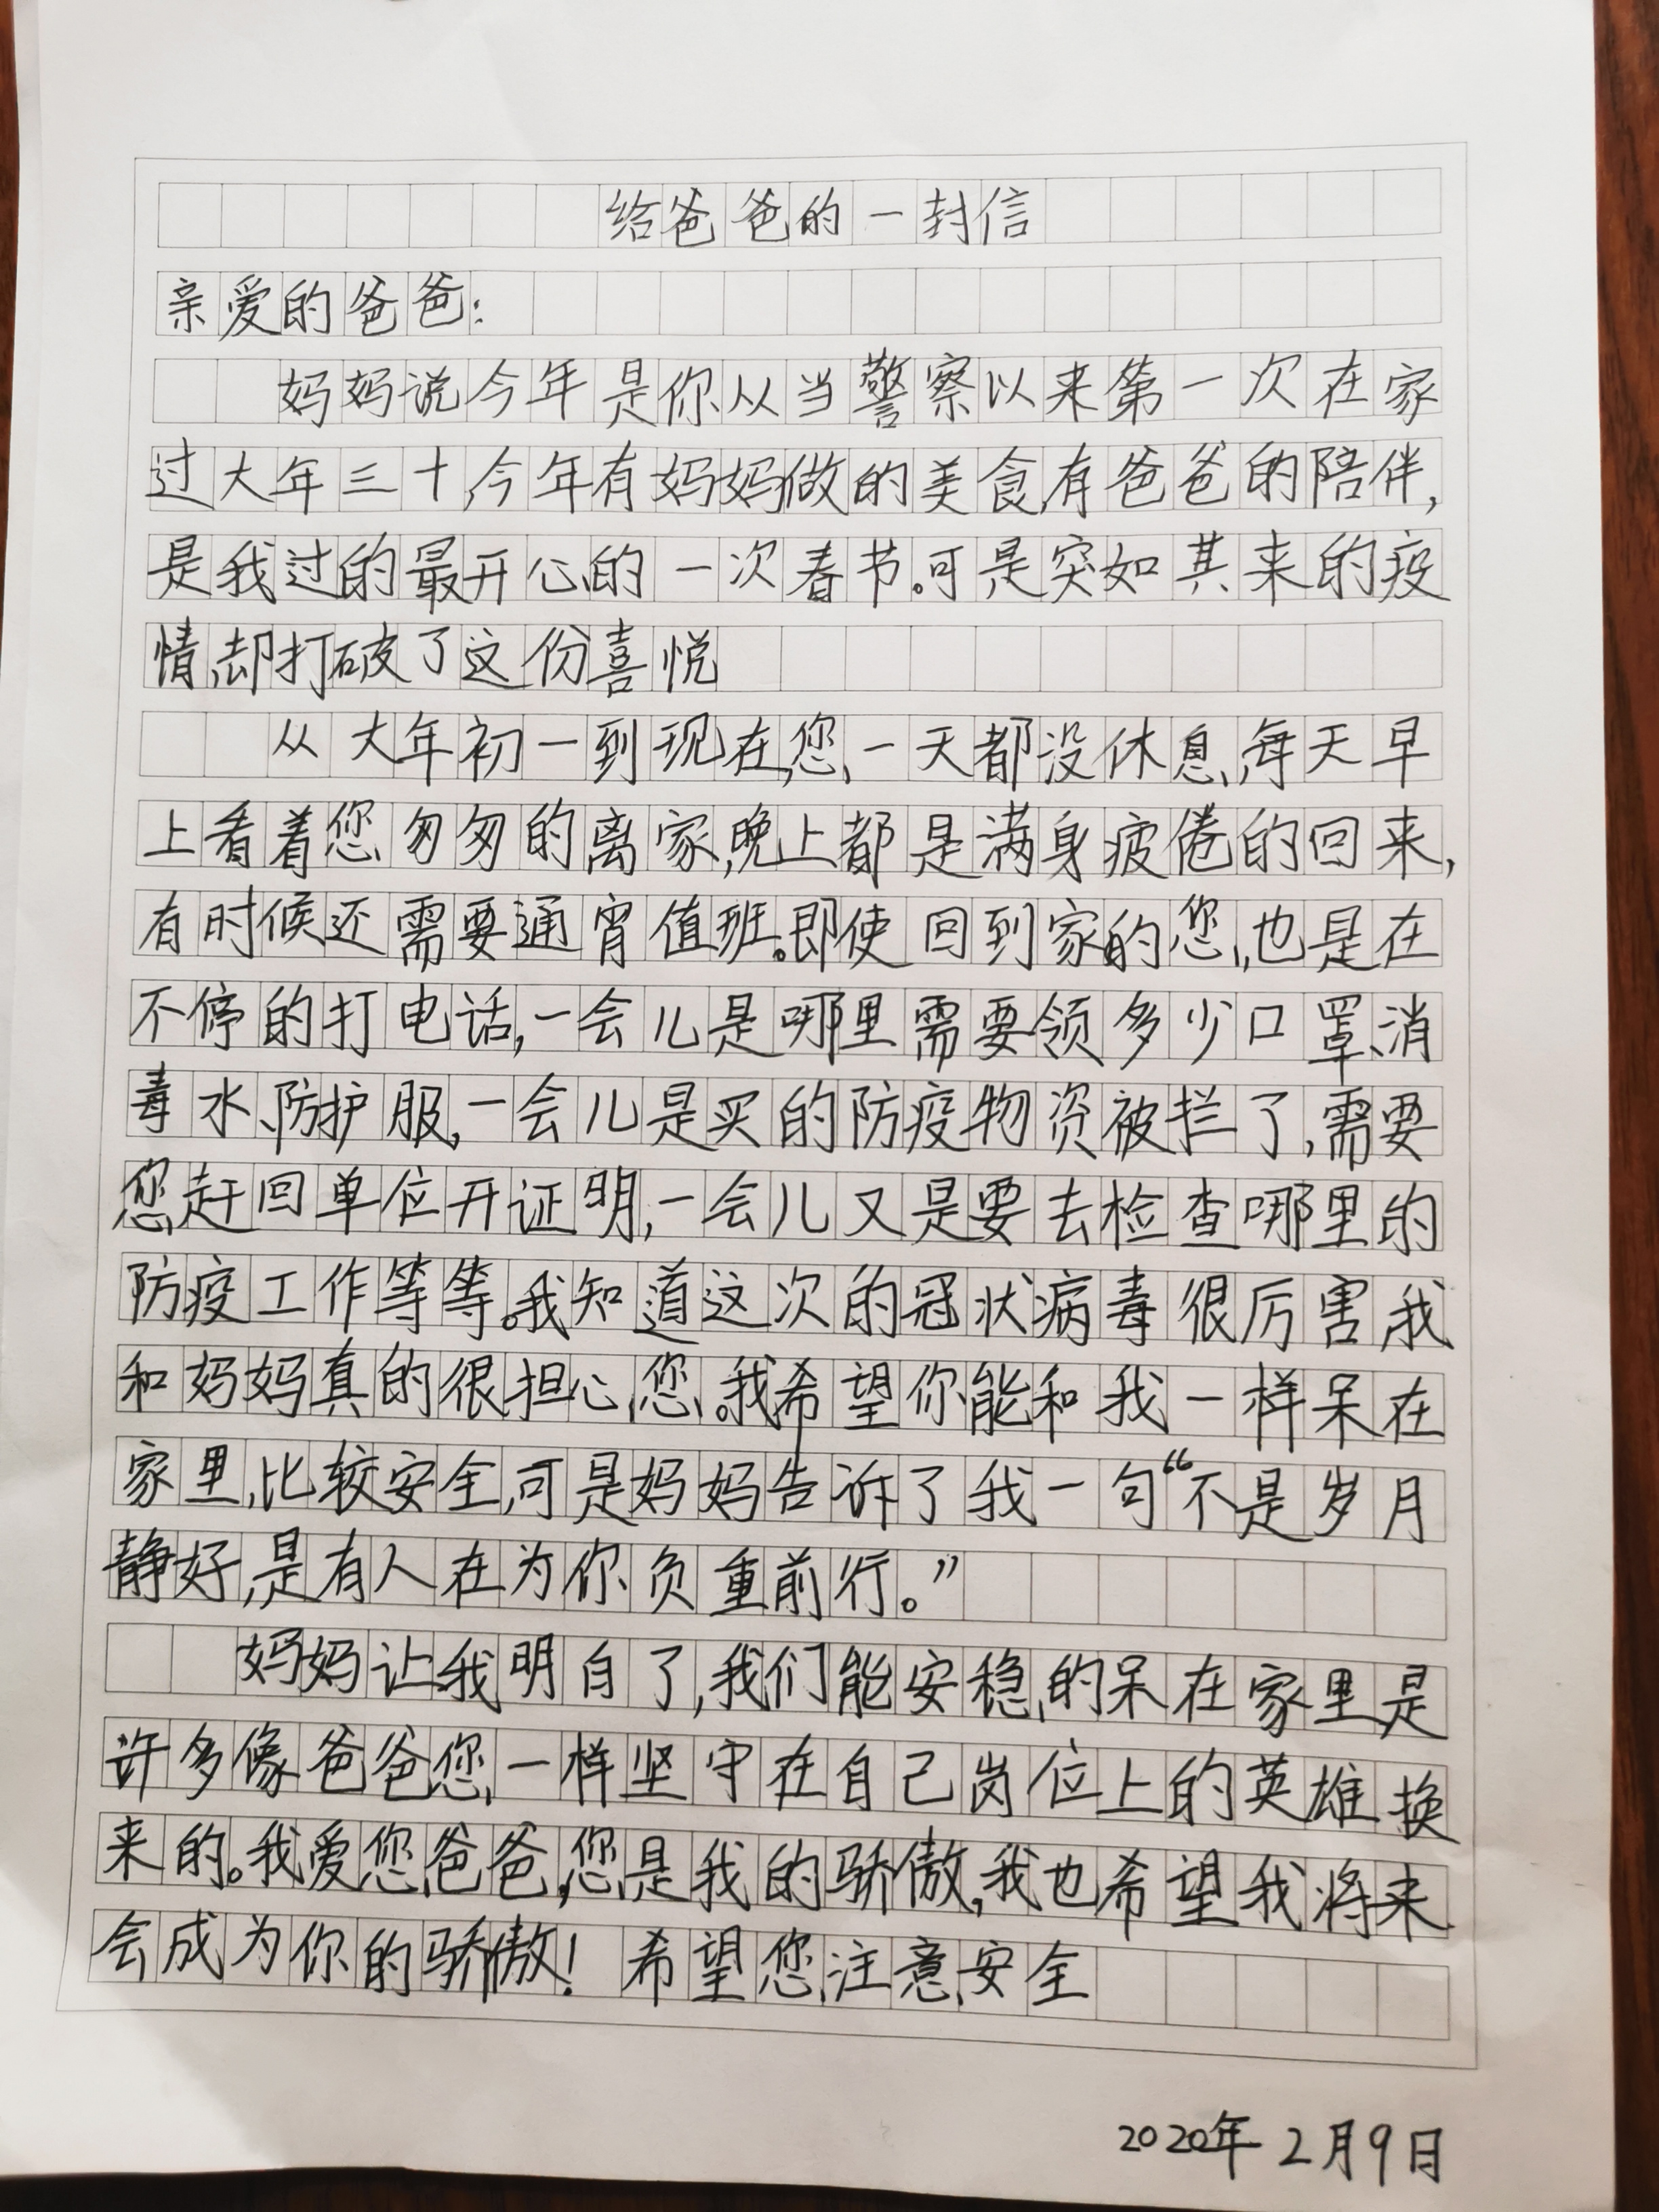 给爸爸的一封信
亲爱的爸爸:
妈妈说今年是你从当警察以来第一次在家
过大年三十,今年有妈妈做的美食,有爸爸的陪伴,
是我过的最开心的一次春节。可是突如其来的疫
情,却打破了这份喜悦
从大年初一到现在,您一天都没休息,每天早
上看着您匆匆的离家,晚上都是满身疲倦的回来,
有时候还需要通宵值班。即使回到家的您,也是在
不停的打电话,一会儿是哪里需要领多少口罩、消
毒水、防护服,一会儿是买的防疫物资被拦了,需要
您赶回单位开证明,一会儿又是要去检查哪里的
防疫工作等等。我知道这次的冠状病毒很厉害,我
和妈妈真的很担心您。我希望你能和我一样呆在
家里,比较安全,可是妈妈告诉了我一句“不是岁月
静好,是有人在为你负重前行。”
妈妈让我明白了,我们能安稳的呆在家里是
许多像爸爸您一样坚守在自己岗位上的英雄换
来的。我爱您爸爸,您是我的骄傲,我也希望我将来
会成为你的骄傲! 希望您注意安全
2020年2月9日